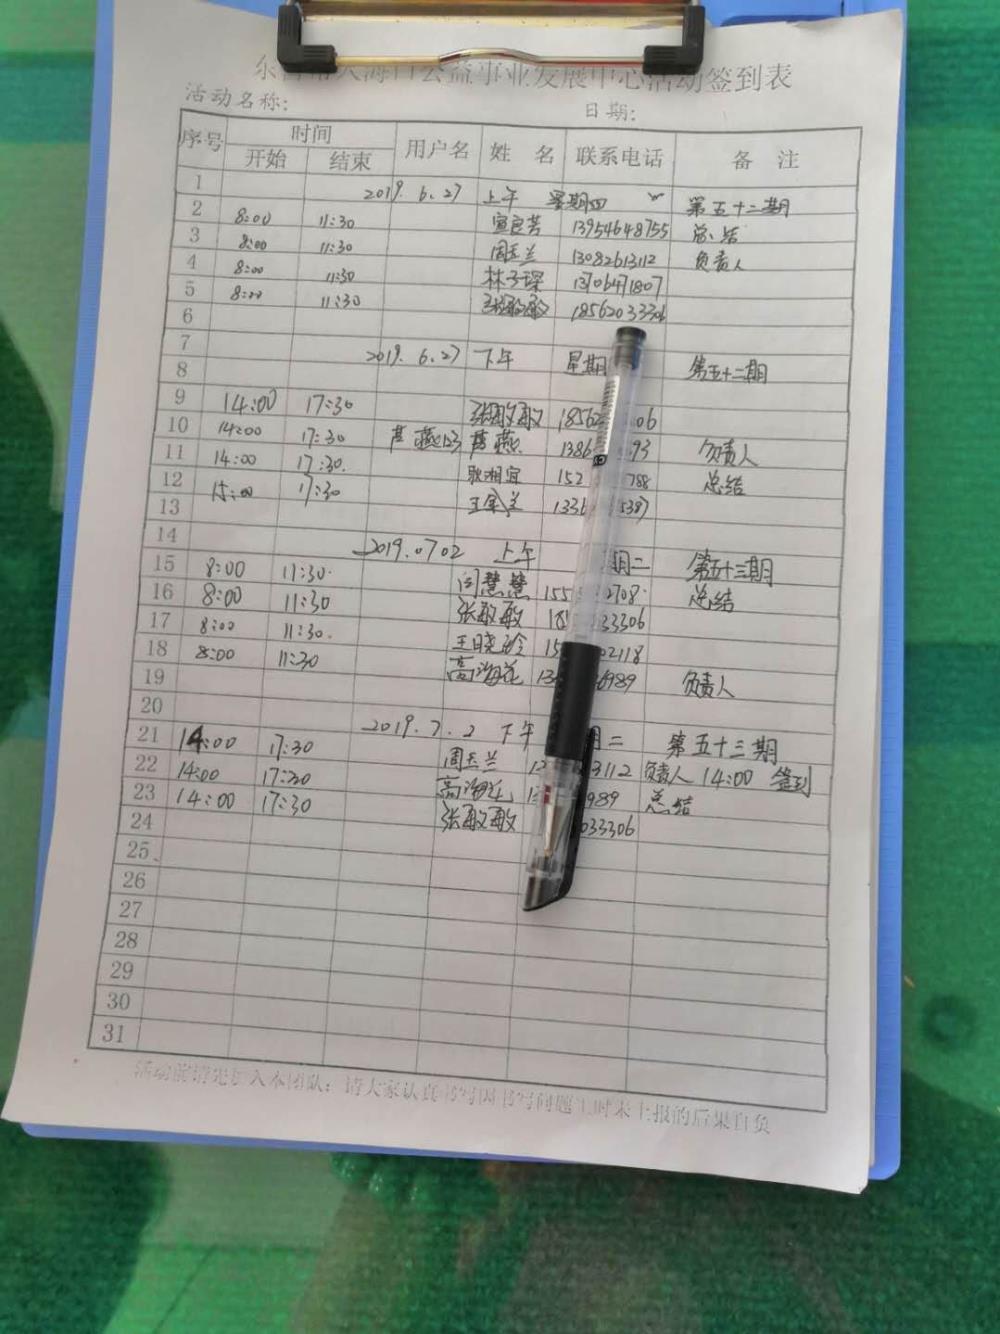 公益事业发展中心活动签到表
活动名称: 日期:
序号 时间 用户名 姓 名 联系电话 备 注
开始 结束
1 2019.6.27 上午 星期四 第五十二期
2 8:00 11:30 宣良芳 13954648755 总结
3 8:00 11:30 周玉兰 13082613112 负责人
4 8:00 11:30 林子琛 13706471807
5 8:00 11:30 张敏敏 18562033306
6
7 2019.6.27 下午 星期 第五十二期
8
9 14:00 17:30 张敏敏 18562 06
10 14:00 17:30 燕123 燕 1386 93 负责人
11 14:00 17:30. 耿湘宜 152 788 总结
12 15:00 17:30 王 兰 1336 5387
13
14 2019.0702 上午 期二 第五十三期
15 8:00 11:30. 闫慧慧 155 2708. 总结
16 8:00 11:30 张敏敏 33306
17 8:00 11:30. 王晓玲 02118
18 8:00 11:30 高海花 6989 负责人
19
20 2019.7.2 下午 期二 第五十三期
21 14:00 17:30 周玉兰 3112 负责人 14:00 签到
22 14:00 17:30 高海花 989 总结
23 14:00 17:30 张敏敏 033306
24
25
26
27
28
29
30
31
活动前请先加入本团队；请大家认真书写因书写问题 时未上报的后果自负